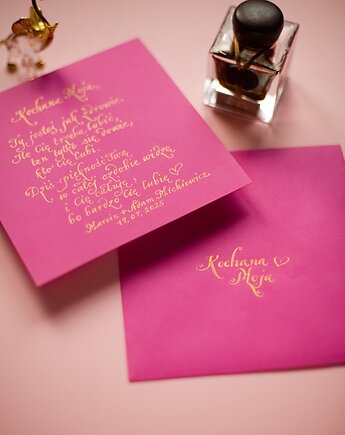 Kochana Moja,
Ty jesteś jak zdrowie.
Ile Cię trzeba cenić,
ten tylko się dowie,
kto Cię
Dziś piękność Twą
w całej ozdobie widzę
i Cię całuję,
bo bardzo Cię lubię ♡
Marcin + Adam Mickiewicz
19.07.2025
Kochana ♡
Moja